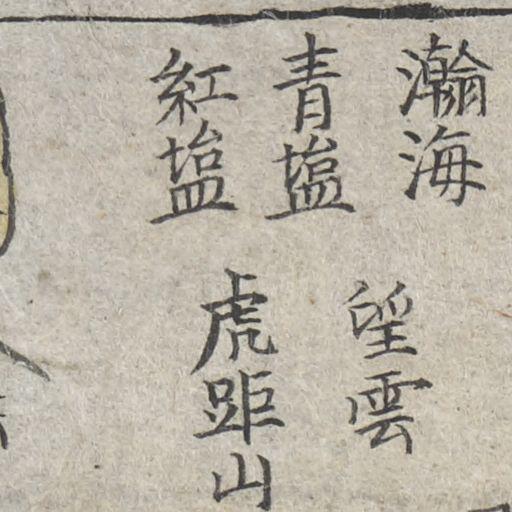 瀚海
青塩
紅塩
望雲
虎距山